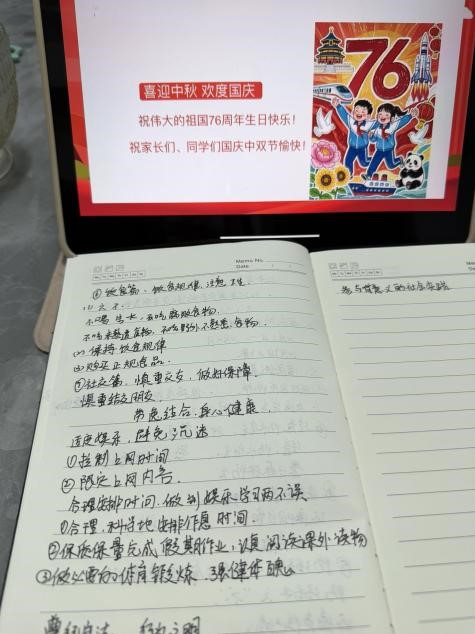 76
喜迎中秋 欢度国庆
祝伟大的祖国76周年生日快乐!
祝家长们、同学们国庆中双节愉快!
Memo No.
Date
④饮食篇、饮食规律、注意卫生
不喝生水,不吃腐败食物.
(2)保持饮食规律
(3)购买正规食品.
⑤社交篇,慎重交友,做好保障
慎重结交朋友
劳逸结合,身心健康
适度娱乐,避免沉迷
①控制上网时间
②限定上网内容.
合理安排时间.做到娱乐学习两不误
①合理,科学地安排作息时间
②保质保量完成假期作业,认真阅读课外读物
③做必要的体育锻炼.强健体魄
Memo No.
Date
参与有意义的社会实践